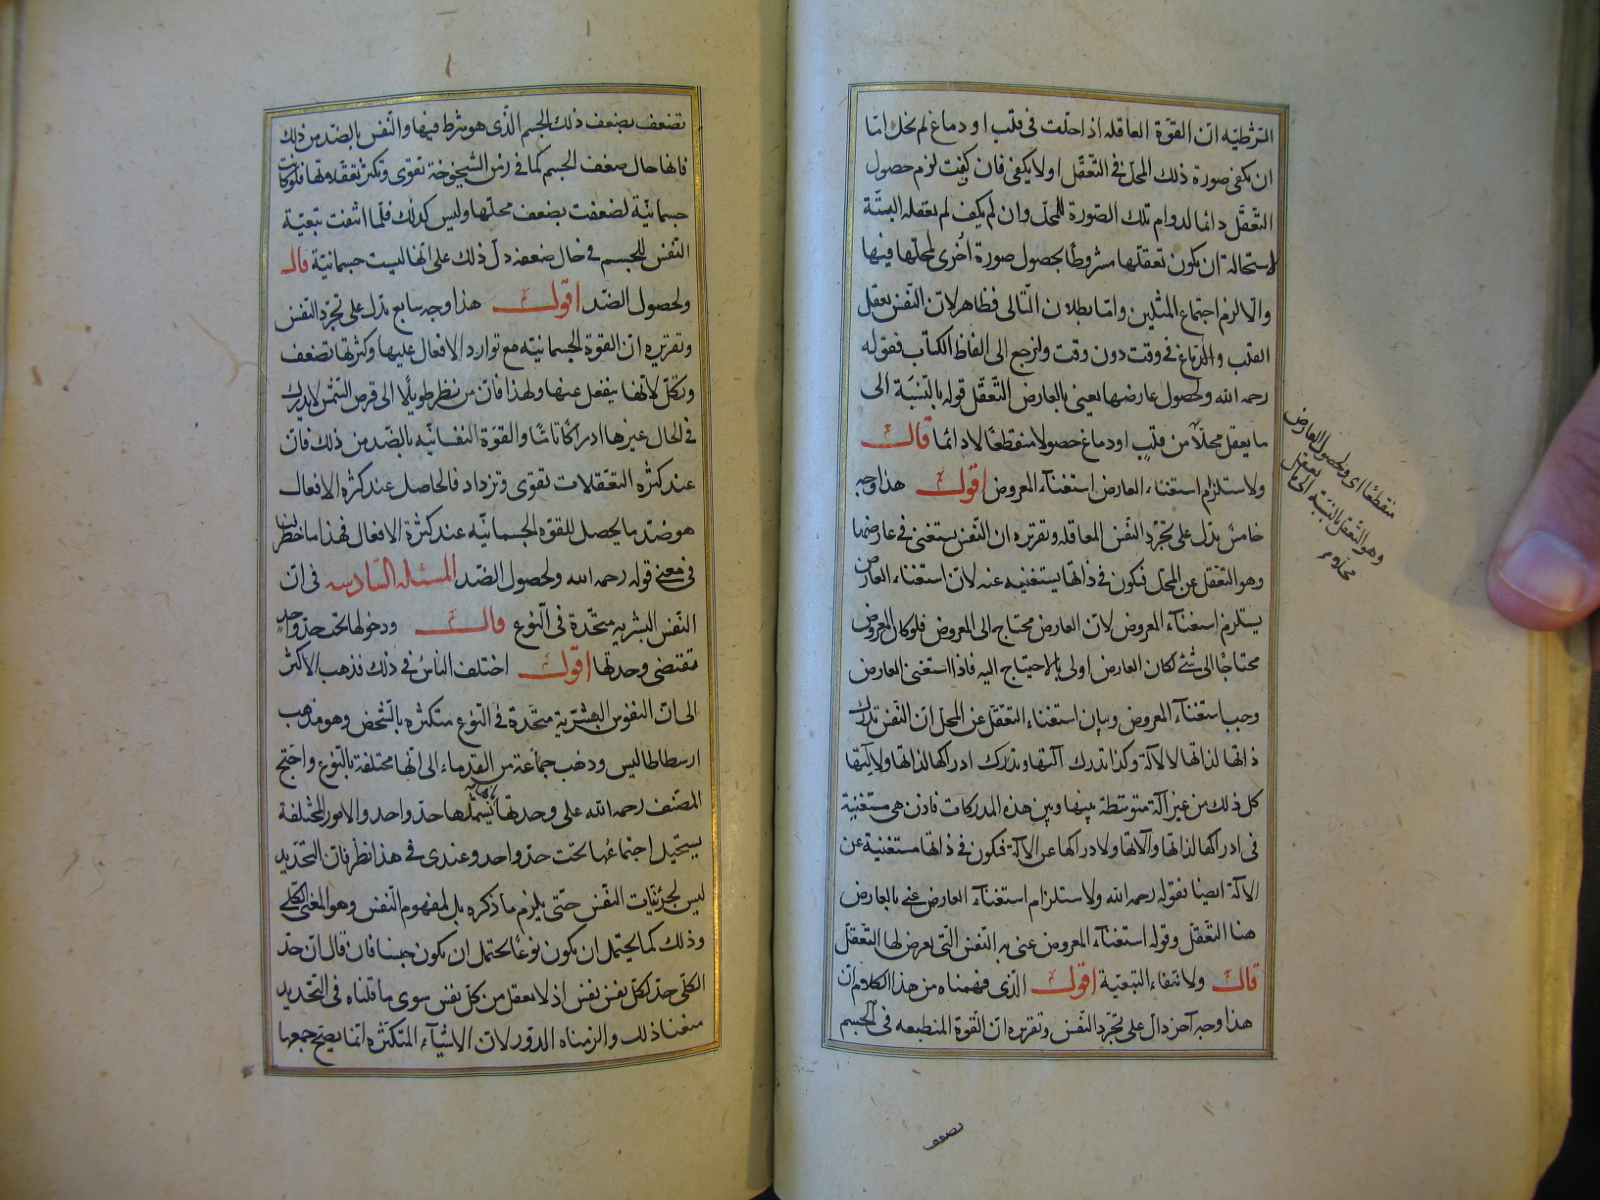 الشرطيه انّ القوّة العاقله اذ احلّت فى قلب او دماغ لم يخل امّا
ان تكفى صورة ذلك المحلّ فى التّعقّل او لا يكفى فان كفت لزم حصول
التّعقّل دائما لدوام تلك الصّورة للمحلّ وان لم يكف لم يعقله البتّة
لاستحالة ان يكون تعقّلها مشروطًا بحصول صورة اخرى لمحلّها فيها
والّا لزم اجتماع المثلين وامّا بطلان التّالى فظاهر لانّ النّفس يعقل
القلب والدّماغ فى وقت دون وقت ولنرجع الى الفاظ الكتاب فقوله
رحمه الله ولحصول عارضها يعنى بالعارض التّعقّل قوله بالنّسبة الى
ما يعقل محلّا من قلب او دماغ حصولا منقطعًا لا دائما قال
ولاستلزام استغناء العارض استغناء المعروض اقول هذا وجه
خامس يدلّ على تجرّد النّفس العاقله وتقريره ان النّفس يستغنى فى عارضها
وهو التّعقّل عن المحلّ فيكون فى ذاتها يستغنيه عنه لانّ استغناء العارض
يستلزم استغناء المعروض لانّ العارض محتاج الى المعروض فلو كان المعروض
محتاجًا الى شئ لكان العارض اولى بالاحتياج اليه فاذا استغنى العارض
وجب استغناء المعروض وبيان استغناء التعقّل عن المحلّ انّ النّفس تدرك
ذاتها لذاتها لا لآلة وكذا تدرك آلتها وتدرك ادراكها لذاتها ولآلتها
كل ذلك من غير آلة متوسّطة بينها وبين هذه المدركات فاذن هى مستغنية
فى ادراكها لذاتها ولآلاتها ولادراكها عن الآلة فيكون فى ذاتها مستغنية عن
الآلة ايضا فقوله رحمه الله ولاستلزام استغناء العارض عنى بالعارض
هنا التّعقّل وقوله استغناء المعروض عنى به النّفس الّتى يعرض لها التّعقّل
قال ولانتفاء التبعيّة اقول الّذى فهمناه من هذا الكلام انّ
هذا وجه آخر دالّ على تجرّد النّفس وتقريره انّ القوّة المنطبعه فى الجسم
منقطعًا اى ولحصول العارض
وهو التّعقل بالنسبة الى ما يعقل
تضعف
تضعف بضعف ذلك الجسم الّذى هو شرط فيها والنّفس بالضّد من ذلك
فانها حال ضعف الجسم كما فى زمن الشيخوخة تقوى وتكثر تعقّلاتها فلو كانت
جسمانيّة لضعفت بضعف محلّها وليس كذلك فلمّا انتفت تبعيّة
النّفس للجسم فى حال ضعفه دلّ ذلك على انّها ليست جسمانيّة قال
ولحصول الضّد اقول هذا وجه سابع يدلّ على تجرّد النّفس
وتقريره انّ القوّة الجسمانيّه مع توارد الافعال عليها وكثرتها تضعف
وتكلّ لانّها ينفعل عنها ولهذا فانّ من نظر طويلًا الى قرص الشّمس لا يدرك
فى الحال غيرها ادراكًا تامًّا والقوّة النفسانيّه بالضّد من ذلك فانّ
عند كثرة التعقّلات تقوى وتزداد فالحاصل عند كثره الافعال
هو ضدّ ما يحصل للقوّه الجسمانيّه عند كثرة الافعال فهذا ما خطر لنا
فى معنى قوله رحمه الله ولحصول الضّد المسئله السّادسه فى انّ
النّفس البشريه متّحدة فى النّوع قال ودخولها تحت حدّ واحد
مقتضى وحدتها اقول اختلف النّاس فى ذلك فذهب الاكثر
الى انّ النفوس البشريّة متّحدة فى النّوع متكثره بالشّخص وهو مذهب
ارسطاطاليس وذهب جماعة من القدماء الى انّها مختلفة بالنّوع واحتجّ
المصنّف رحمه الله على وحدتها بانّها يشملها حدّ واحد والامور المختلفة
يستحيل اجتماعها تحت حدّ واحد وعندى فى هذا نظر فانّ التحديد
ليس لجزئيّات النّفس حتّى يلزم ما ذكره بل لمفهوم النّفس وهو المعنى الكلّى
وذلك كما يحتمل ان يكون نوعًا يحتمل ان يكون جنسا فان قال انّ حدّ
الكلّى حدّ لكلّ نفس نفس اذ لا يعقل من كلّ نفس سوى ما قلناه فى التّحديد
منعنا ذلك والزمناه الدّور لانّ الاشياء المتكثره انّما يصحّ جمعها